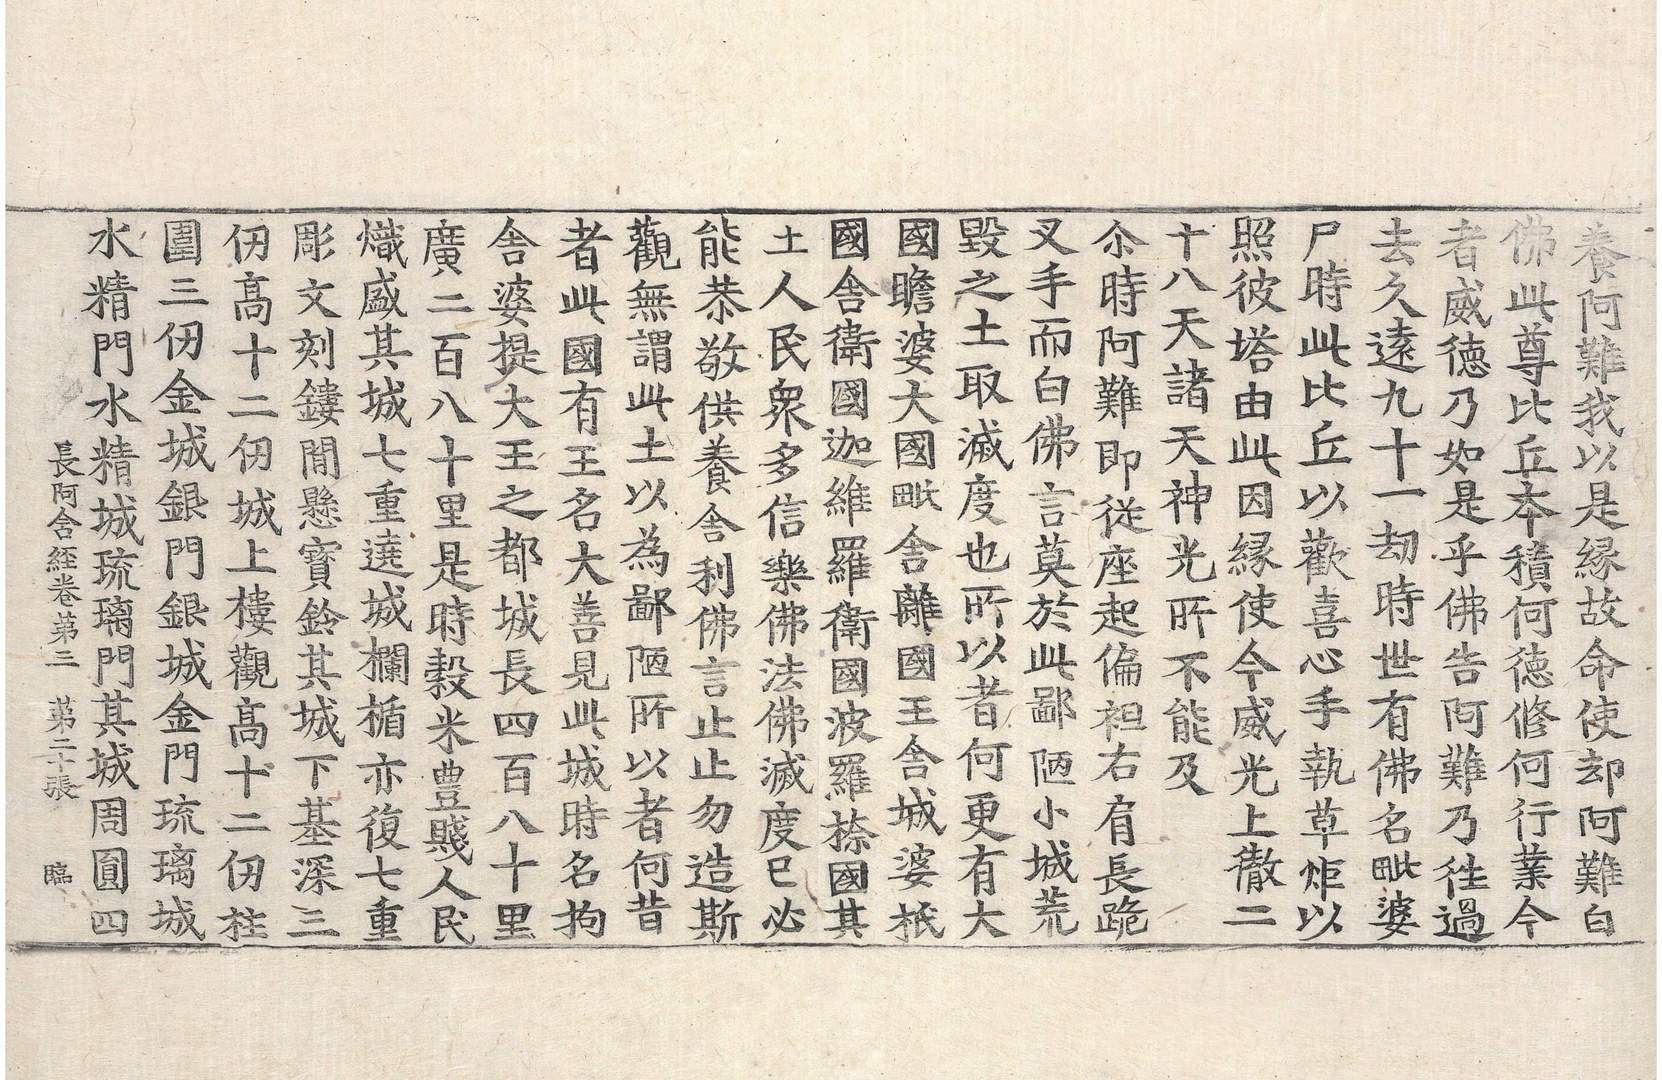 養阿難我以是緣故命使却阿難白
佛此尊比丘本積何徳修何行業今
者威徳乃如是乎佛告阿難乃徃過
去久遠九十一劫時世有佛名毗婆
尸時此比丘以歡喜心手執草炬以
照彼塔由此因緣使今威光上徹二
十八天諸天神光所不能及
尒時阿難即從座起偏袒右肩長跪
叉手而白佛言莫於此鄙陋小城荒
毀之土取滅度也所以者何更有大
國瞻婆大國毗舍離國王舍城婆祇
國舍衛國迦維羅衛國波羅㮈國其
土人民衆多信樂佛法佛滅度已必
能恭敬供養舍利佛言止止勿造斯
觀無謂此土以為鄙陋所以者何昔
者此國有王名大善見此城時名拘
舍婆提大王之都城長四百八十里
廣二百八十里是時穀米豊賤人民
熾盛其城七重遶城欄楯亦復七重
彫文刻鏤間懸寳鈴其城下基深三
仞髙十二仞城上樓觀髙十二仞柱
圍三仞金城銀門銀城金門琉璃城
水精門水精城琉璃門其城周圓四
長阿含経卷第三 第二十張 臨